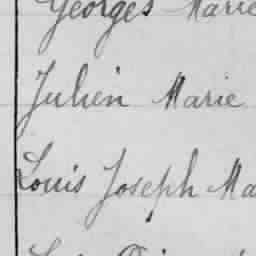 Georges Marie
Julien Marie
Louis Joseph Ma